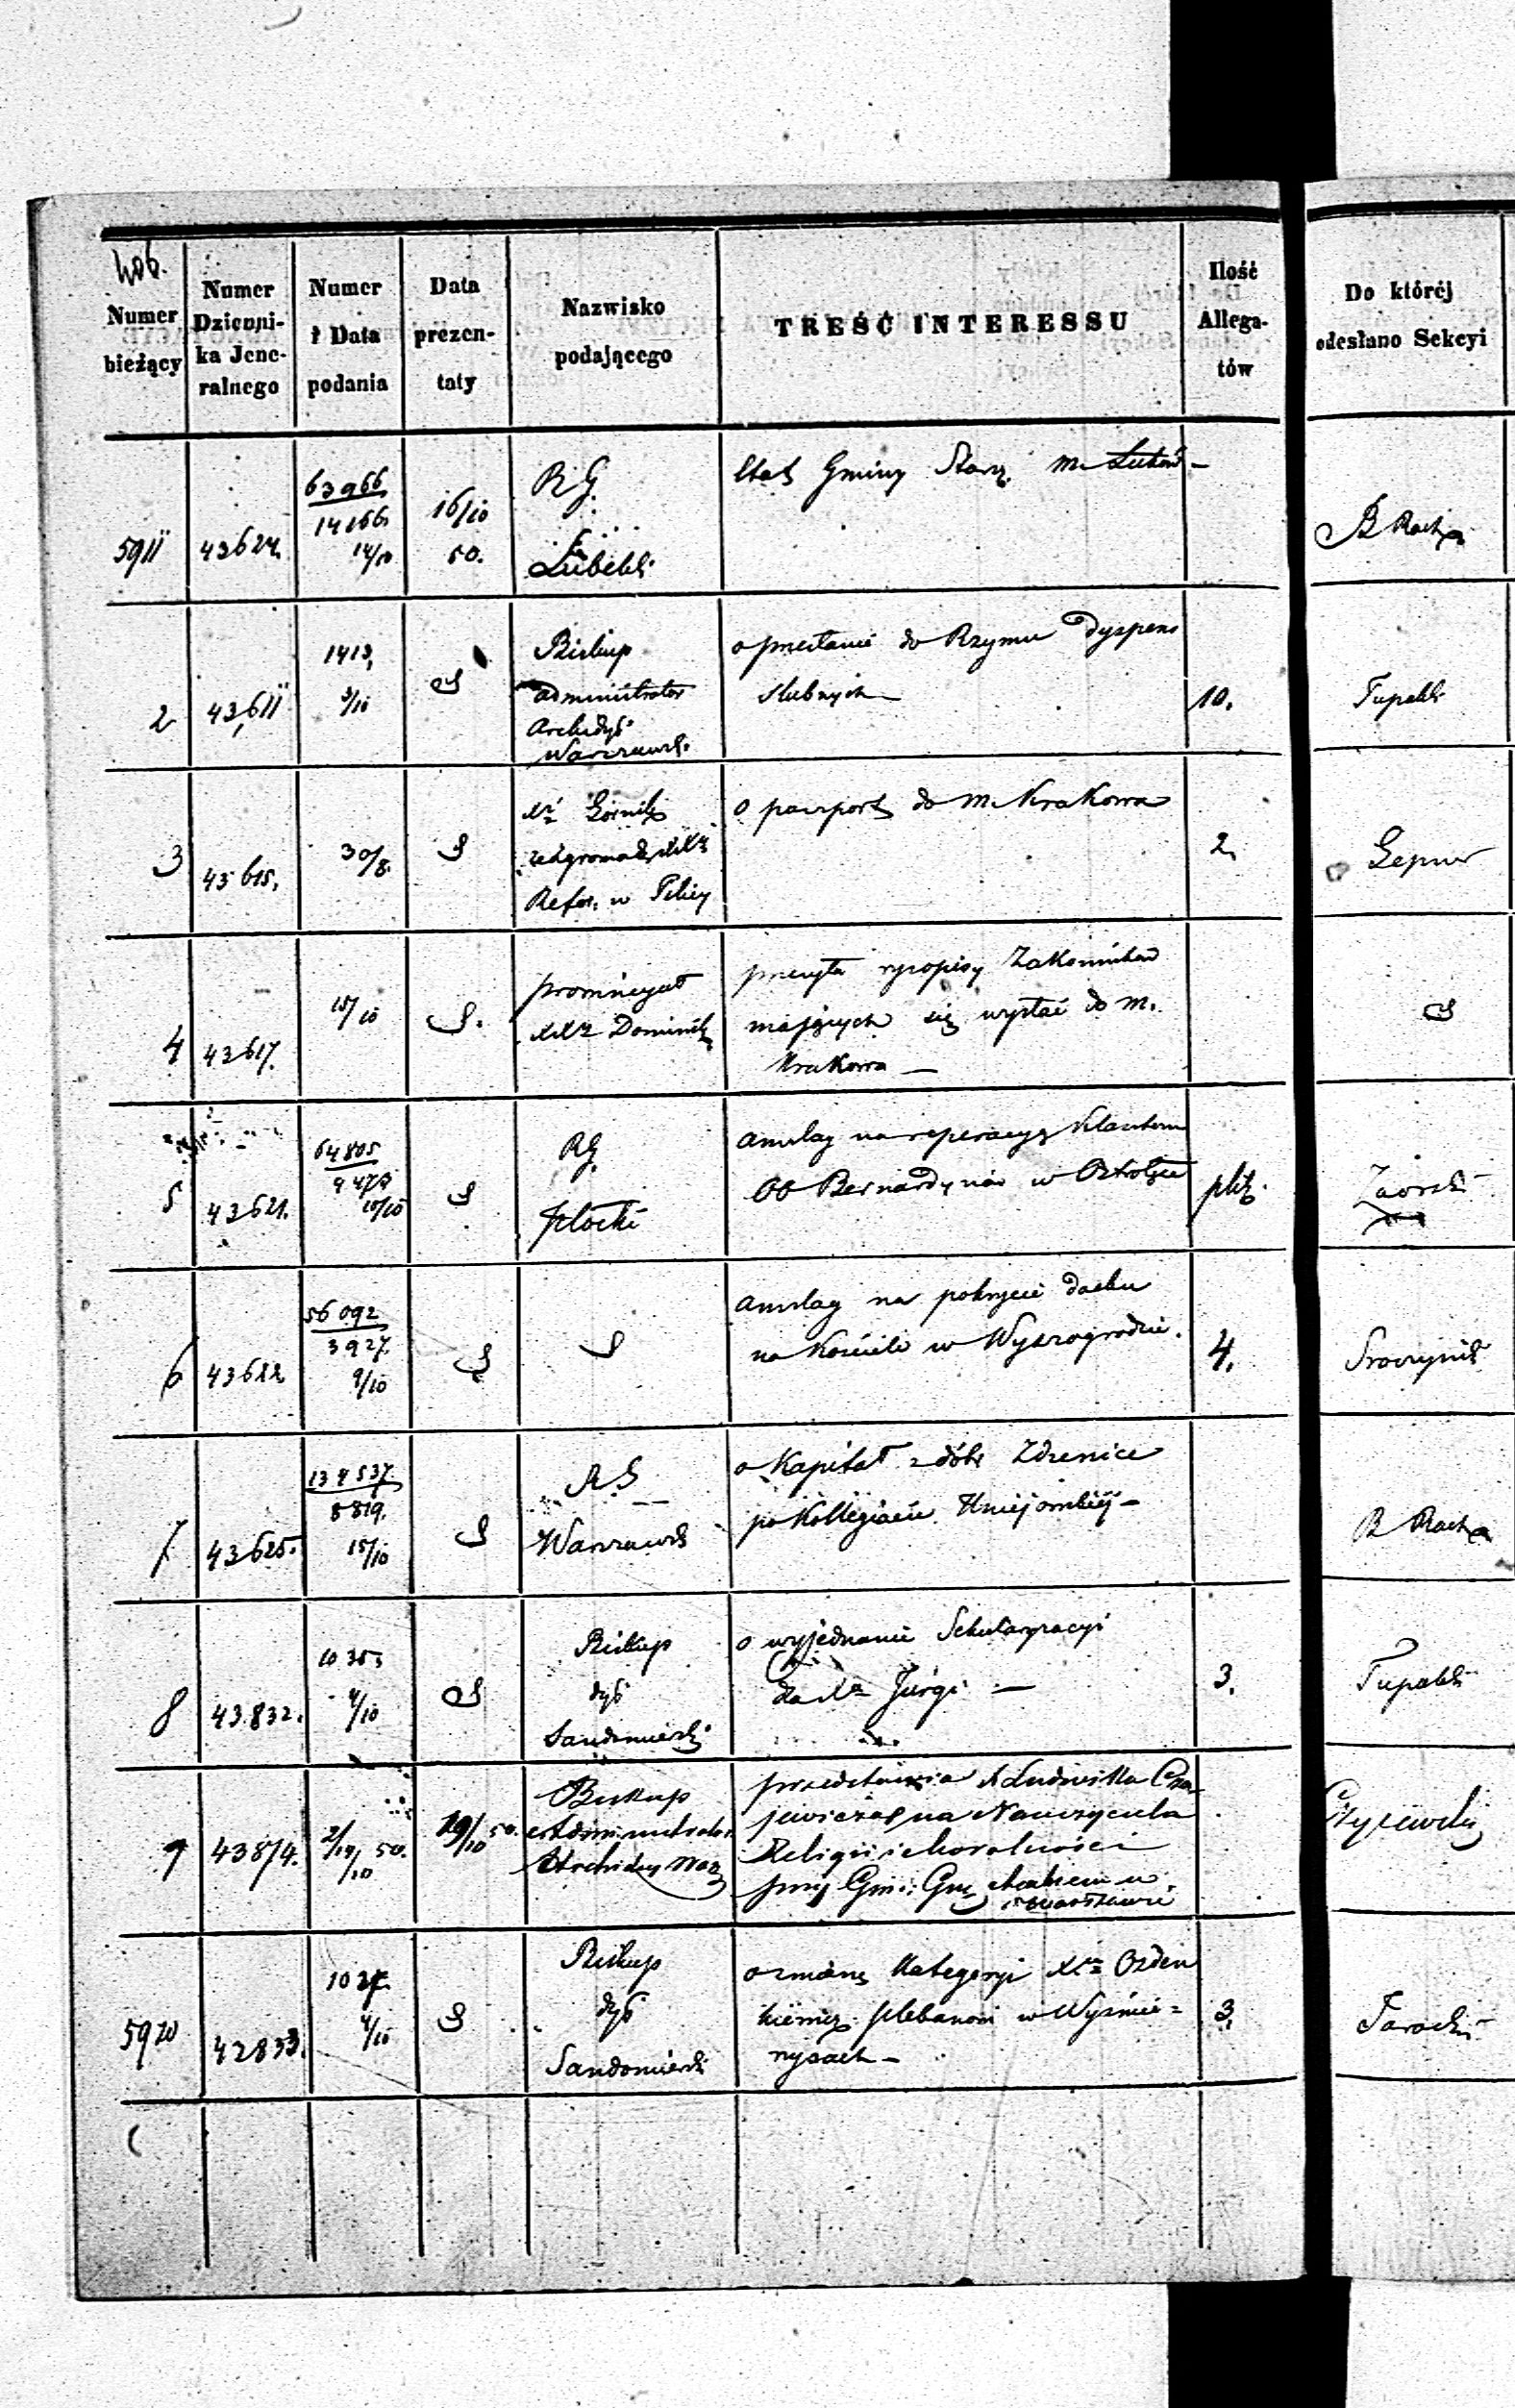 406.
Numer bieżący
Numer Dzienni-ka Jene-ralnego
Numer i Data podania
Data prezen-taty
Nazwisko podającego
TREŚĆ INTERESSU
Ilość Allega-tów
Do któréj odesłano Sekcyi
63966
14166
14/10
16/10
50.
5911
43624.
R G.
Lubelski
Etat Gminy Starz. m.
B Rach
2
43,611
1413,
3/10
Biskup
administrator
Archidyec
Warszawsk.
o przesłanie do Rzymu dyspens
ślubnych
10.
Tupalski
3
43615.
30/8.
Xdz Górnik
zakgromadz XXdz
Refor. w Pilicy
o paszport do m. Krakowa
2.
4
43617.
15/10
prowincyał
XXdz Dominik
przesyła rysopisy Zakonników
mających się wysłać do m.
Krakowa —
5
43621.
64805
9479
10/10
RG.
płocki
anszlag na reperacyę klasztoru
OO Bernardynów w Ostrołęce
plik.
Zaorski
6
43622
56092
3927.
9/10
anszlag na pokrycie dachu
na kościele w Wyszogrodzie.
4.
7
43625.
134537.
8819.
15/10
R. G
Warszawsk
o kapitał z dóbr Zdzenice
po Kollegiacie Uniejowskiéj —
B Rach
8
43.832.
1035
4/10
Biskup
dyec
Sandomierski
o wyjednanie Sekularyzacyi
dla Xdza Jurgi —
3.
Tupalski
9
43874.
2/10
19/10 50.
Biskup
Administrator
Archidiec War
przedstawia X Ludwika Cza-
jewicza na Nauczyciela
Religii i Moralności
przy Gim: Gub.
w Warszawie
Czyżewski
5920
42833.
1027.
4/10
Biskup
dyec
Sandomierski
o zmianę kategoryi Xdza
plebanowi w Wyśmie=
rzycach —
3.